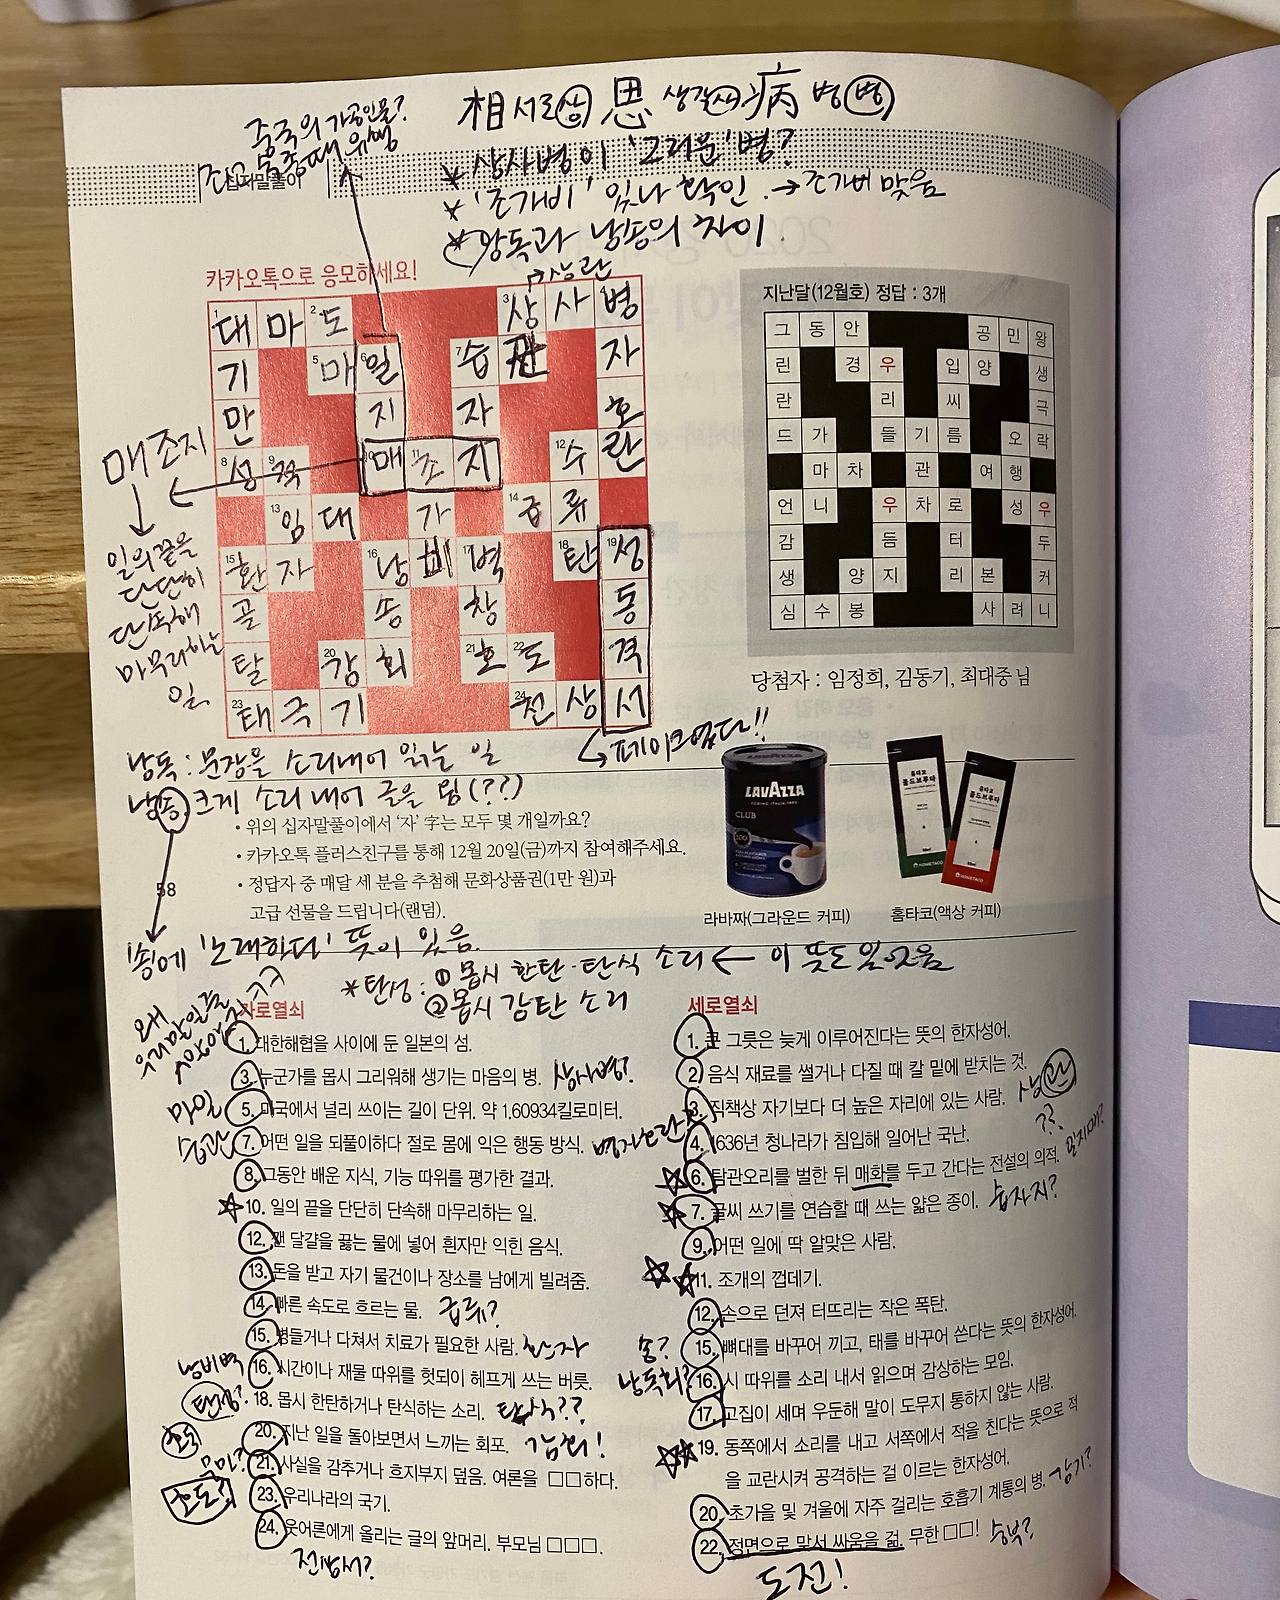 相 서로 상 思 생각 사 病 병 병
중국의 가공인물?
십자말풀이
* 상사병이 '그리운' 병?
* '조개비' 있나 확인. → 조가비 맞음
* 낭독과 낭송의 차이
→상관
카카오톡으로 응모하세요!
1 대 마 2 도 3 상 사 4 병
기 5 마 6 일 7 습 관 자
만 지 자 호
8 성 9 적 10 매 11 조 지 12 수 란
13 임 대 가 14 급 류
15 환 자 16 낭 비 17 벽 18 탄 19 성
골 송 창 동
탈 20 감 회 21 호 22 도 격
23 태 극 기 24 전 상 서
매조지
일의 끝을
단단히
단속해
마무리하는
일.
지난달(12월호) 정답 : 3개
그 동 안 공 민 왕
린 경 우 입 양 생
란 리 씨 극
드 가 들 기 름 오 락
마 차 관 여 행
언 니 우 차 로 성 우
감 듬 터 두
생 양 지 리 본 커
심 수 봉 사 려 니
당첨자 : 임정희, 김동기, 최대중 님
페이크였다!!
낭독 : 문장을 소리내어 읽는 일
낭송. 크게 소리 내어 글을 욈(??)
• 위의 십자말풀이에서 ‘자’ 字는 모두 몇 개일까요?
• 카카오톡 플러스친구를 통해 12월 20일(금)까지 참여해주세요.
• 정답자 중 매달 세 분을 추첨해 문화상품권(1만 원)과
고급 선물을 드립니다(랜덤).
58
LAVAZZA
CLUB
100
홈타코
콜드브루타
HOMETACO
홈타코
콜드브루타
HOMETACO
라바짜(그라운드 커피)
홈타코(액상 커피)
'송'에 '노래한다' 뜻이 있음.
* 탄성 : ① 몹시 한탄·탄식 소리 ← 이 뜻도 있었음
② 몹시 감탄 소리
왜
가로열쇠
1. 대한해협을 사이에 둔 일본의 섬.
3. 누군가를 몹시 그리워해 생기는 마음의 병. 상사병?
마일
5. 미국에서 널리 쓰이는 길이 단위. 약 1.60934킬로미터.
습관
7. 어떤 일을 되풀이하다 절로 몸에 익은 행동 방식.
8. 그동안 배운 지식, 기능 따위를 평가한 결과.
10. 일의 끝을 단단히 단속해 마무리하는 일.
12. 깬 달걀을 끓는 물에 넣어 흰자만 익힌 음식.
13. 돈을 받고 자기 물건이나 장소를 남에게 빌려줌.
14. 빠른 속도로 흐르는 물. 급류?
15. 병들거나 다쳐서 치료가 필요한 사람. 환자
낭비벽
16. 시간이나 재물 따위를 헛되이 헤프게 쓰는 버릇.
탄성?
18. 몹시 한탄하거나 탄식하는 소리. 탄식??
20. 지난 일을 돌아보면서 느끼는 회포. 감회!
21. 사실을 감추거나 흐지부지 덮음. 여론을 □□하다.
호도?
23. 우리나라의 국기.
24. 웃어른에게 올리는 글의 앞머리. 부모님 □□□.
전상서?
세로열쇠
1. 큰 그릇은 늦게 이루어진다는 뜻의 한자성어.
2. 음식 재료를 썰거나 다질 때 칼 밑에 받치는 것.
3. 직책상 자기보다 더 높은 자리에 있는 사람. 상관
??
병자호란
4. 1636년 청나라가 침입해 일어난 국난.
6. 탐관오리를 벌한 뒤 매화를 두고 간다는 전설의 의적. 일지매?
7. 글씨 쓰기를 연습할 때 쓰는 얇은 종이. 습자지?
9. 어떤 일에 딱 알맞은 사람.
11. 조개의 껍데기.
12. 손으로 던져 터뜨리는 작은 폭탄.
송?
15. 뼈대를 바꾸어 끼고, 태를 바꾸어 쓴다는 뜻의 한자성어.
낭독회?
16. 시 따위를 소리 내서 읽으며 감상하는 모임.
17. 고집이 세며 우둔해 말이 도무지 통하지 않는 사람.
19. 동쪽에서 소리를 내고 서쪽에서 적을 친다는 뜻으로 적
을 교란시켜 공격하는 걸 이르는 한자성어.
20. 초가을 및 겨울에 자주 걸리는 호흡기 계통의 병. 감기?
22. 정면으로 맞서 싸움을 걺. 무한 □□! 승부?
도전!